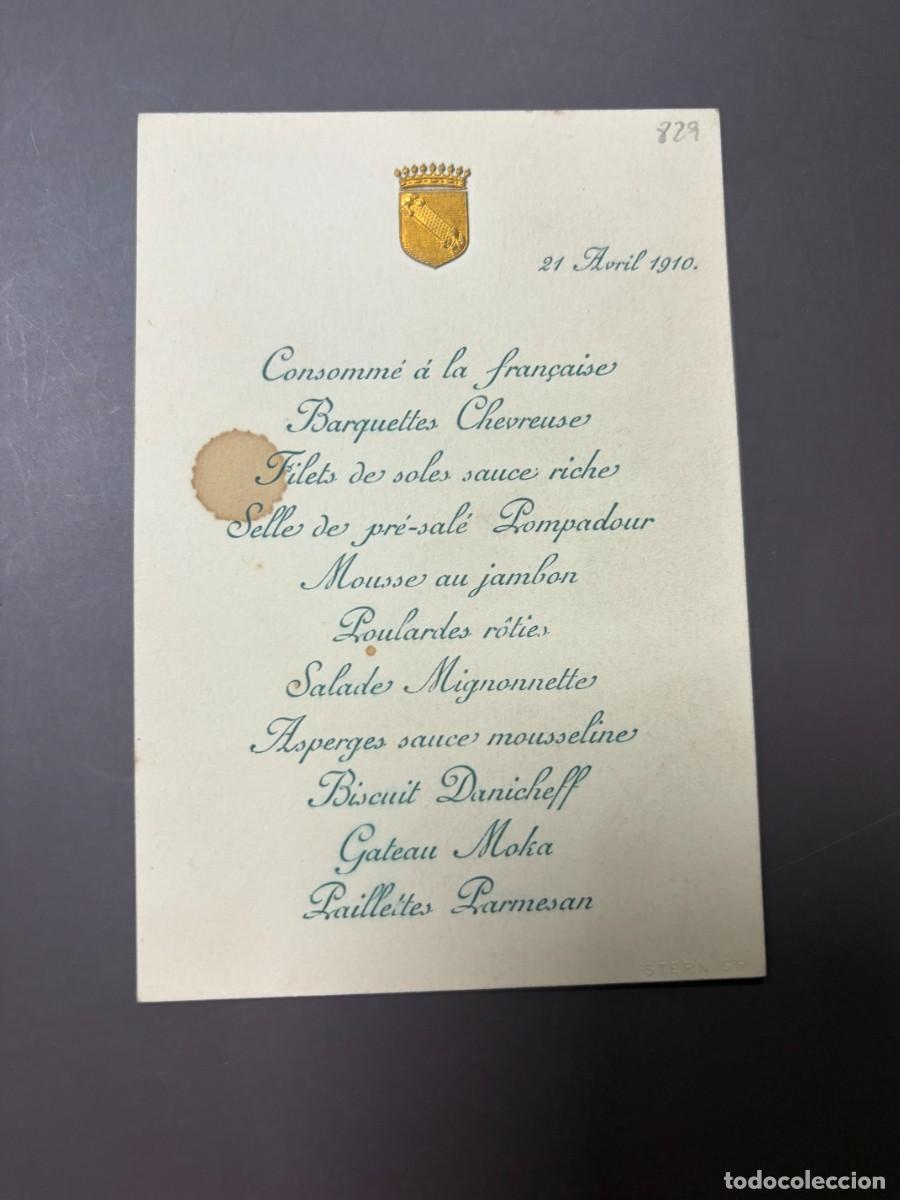 829
21 Avril 1910.
Consommé á la française
Barquettes Chevreuse
Filets de soles sauce riche
Selle de pré-salé Pompadour
Mousse au jambon
Poulardes rôties
Salade Mignonnette
Asperges sauce mousseline
Biscuit Danicheff
Gateau Moka
Paillettes Parmesan
STERN GR
todocoleccion